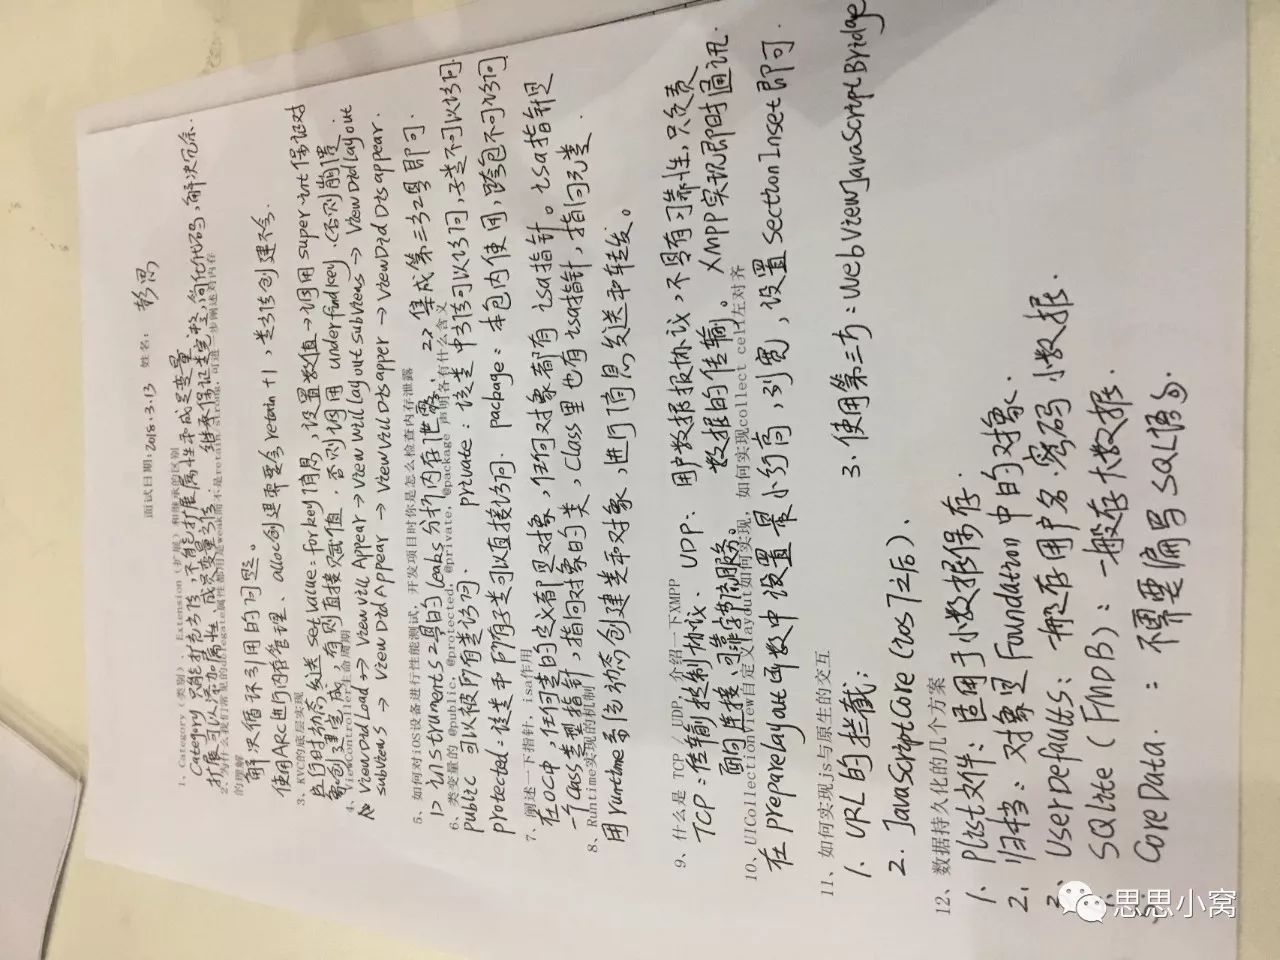 面试日期:2018.3.13 姓名:
1、Category(类别)、Extension(扩展)和继承的区别
Category只能扩充方法,不能扩展属性和成员变量
扩展可以添加属性、成员变量方法. 继承保证类完整,简化代码,解决冗余.
2、为什么我们常见的delegate属性都用是weak而不是retain/strong,可进一步阐述对内存
的理解
解决循环引用的问题。
使用ARC进行内存管理、alloc创建需要会retain+1,类方法创建不会.
3、KVC的底层实现
当运时动态发送 setValue:forkey消息,设置数值→调用super init保证对
象创建完成,有则直接赋值.否则调用underfindkey(否则崩溃
4、ViewController生命周期
ViewDidLoad→ViewWillAppear→ViewWillLayoutSubViews→ViewDidlayout
subViews→ViewDidAppear→ViewWillDisapper→ViewDidDisappear.
5、如何对iOS设备进行性能测试, 开发项目时你是怎么检查内存泄露
1> instruments工具的leaks分析内存泄露. 2> 集成第三方工具即可.
6、类变量的 @public, @protected, @private, @package 声明各有什么含义
public 可以被所有类访问. private:该类中方法可以访问,子类不可以访问.
protected:该类中所有子类可以直接访问. package:本包内使用,跨包不可访问
7、阐述一下指针, isa作用
在OC中,任何类的定义都是对象,任何对象都有isa指针。isa指针是
一个Class类型指针,指向对象的类,Class里也有isa指针,指向元类.
8、Runtime实现的机制
用runtime方法动态创建类和对象,进行消息发送和转发。
9、什么是 TCP / UDP, 介绍一下XMPP
TCP:传输控制协议. UDP: 用户数据报协议,不具有可靠性,只负责
面向连接、可靠字节流服务。 数据的传输。 XMPP实现即时通讯.
10、UICollectionView自定义layout如何实现, 如何实现collect cell左对齐
在preparelayout函数中设置最小行高,列宽,设置sectionInset即可.
11、如何实现js与原生的交互
1. URL的拦截; 3.使用第三方:WebViewJavaScriptBridge
2. JavaScriptCore(ios7之后).
12、数据持久化的几个方案
1. Plist文件:适用于小数据保存.
2. 归档:对象是Foundation中的对象.
3. UserDefaults:一般存用户名.密码.小数据.
SQlite(FMDB):一般存大数据.
CoreData.:不需要编写SQL语句.
思思小窝